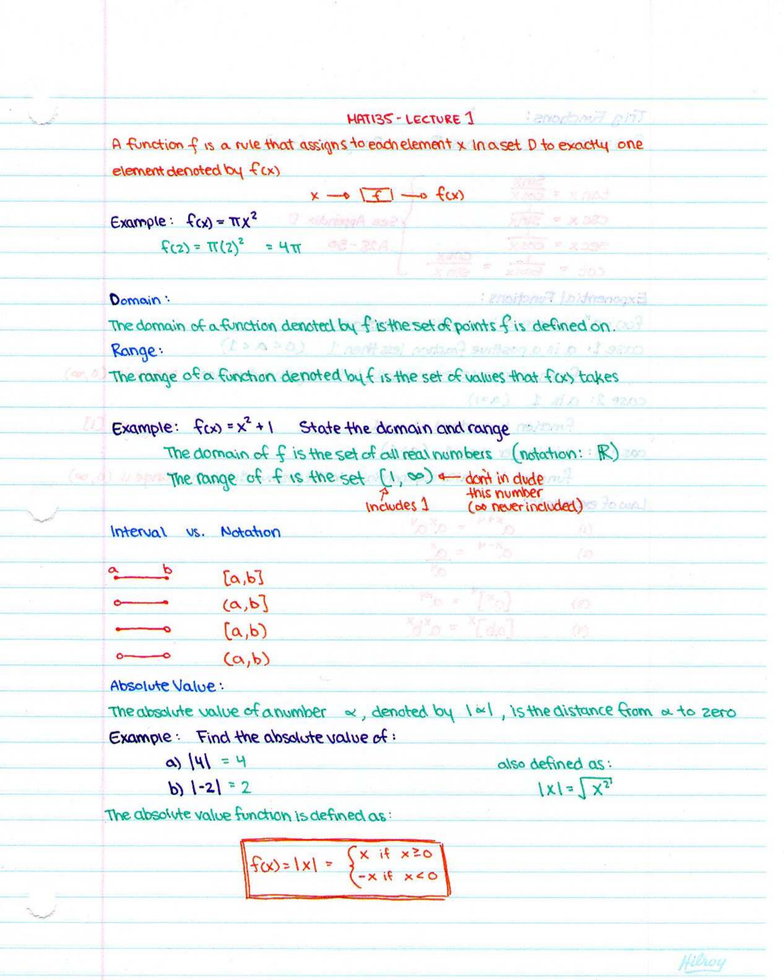 MAT135 - LECTURE 1
A function f is a rule that assigns to each element x in a set D to exactly one
element denoted by f(x)
x → f → f(x)
Example: f(x) = πx²
f(2) = π(2)² = 4π
Domain:
The domain of a function denoted by f is the set of points f is defined on.
Range:
The range of a function denoted by f is the set of values that f(x) takes
Example: f(x) = x² + 1 State the domain and range
The domain of f is the set of all real numbers (notation: ℝ)
The range of f is the set [1, ∞) ← don't include
this number
Includes 1 (∞ never included)
Interval vs. Notation
a b [a,b]
(a,b]
[a,b)
(a,b)
Absolute Value:
The absolute value of a number α, denoted by |α|, is the distance from α to zero
Example: Find the absolute value of:
a) |4| = 4 also defined as:
b) |-2| = 2 |x| = √x²
The absolute value function is defined as:
f(x) = |x| = { x if x ≥ 0
-x if x < 0
Hilroy